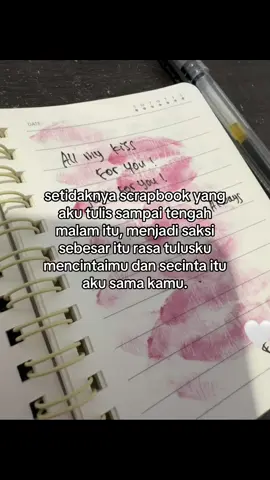 DATE:
All my kiss
For you!
For you!
setidaknya scrapbook yang
aku tulis sampai tengah
malam itu, menjadi saksi
sebesar itu rasa tulusku
mencintaimu dan secinta itu
aku sama kamu.